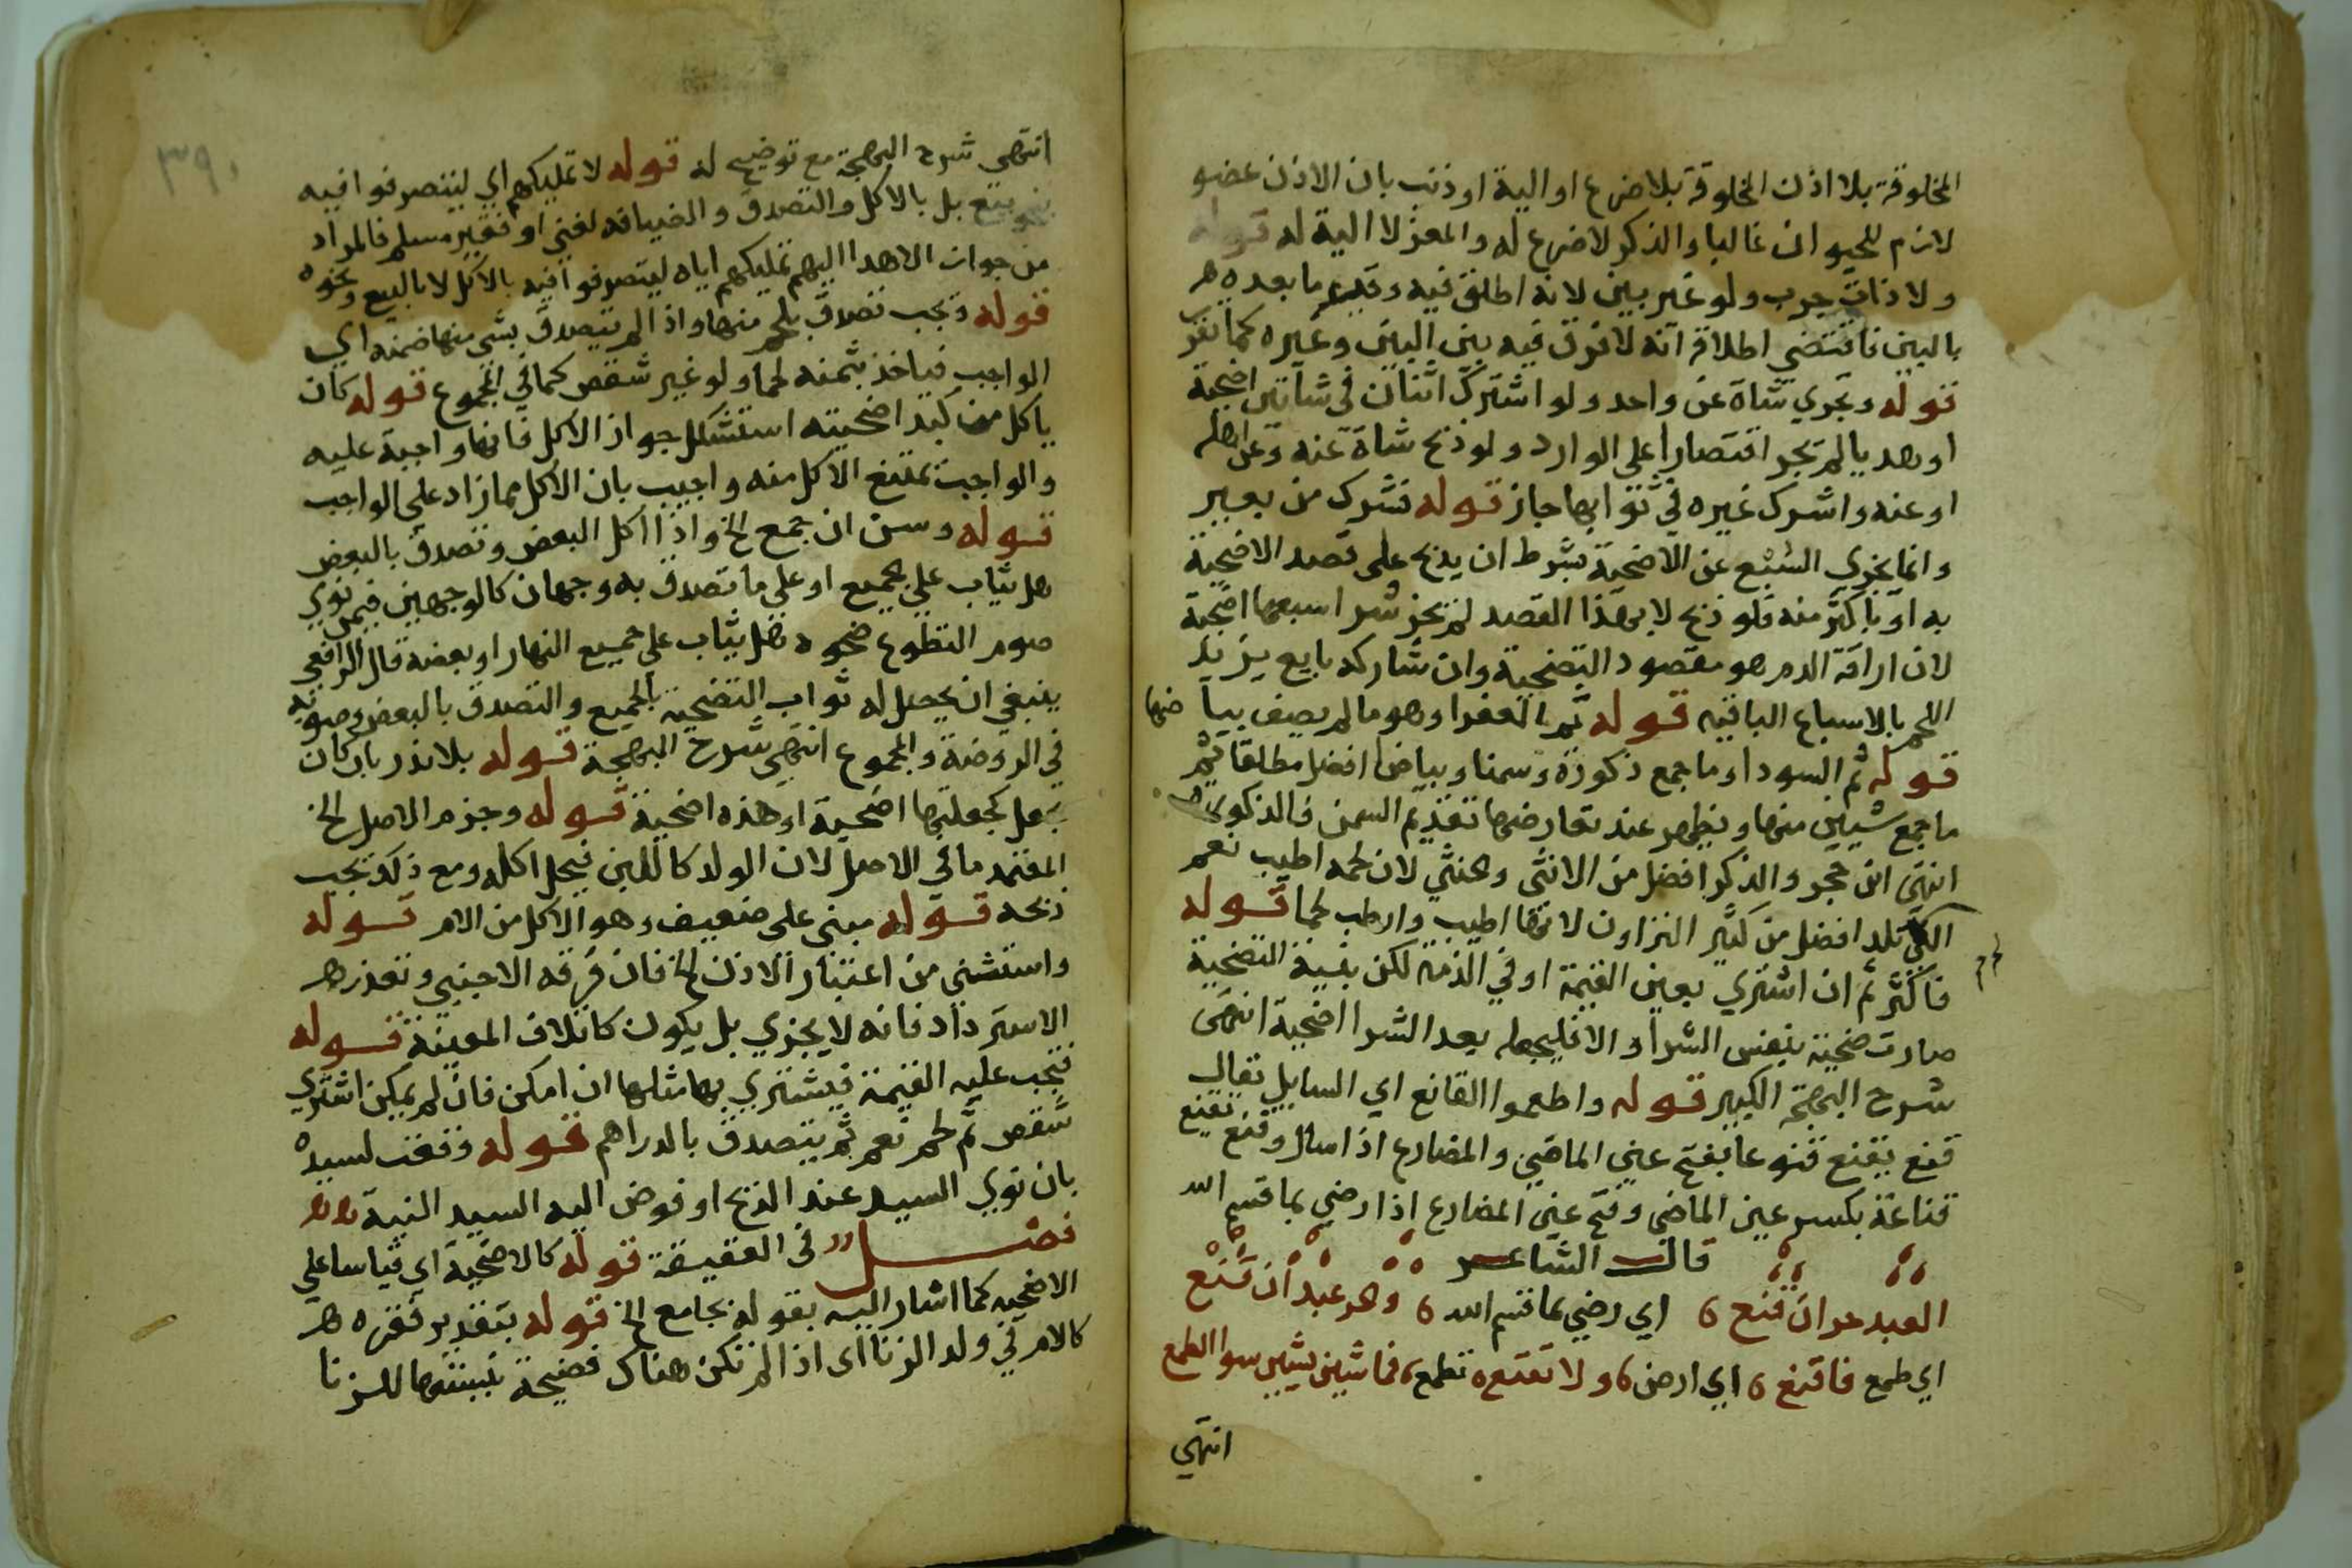 المخلوقة بلا اذن المخلوقة بلا ضرع او الية او ذنب بان الاذن عضو
لازم للحيوان غالبا والذكر لا ضرع له والمعز لا الية له قوله
ولا ذات جرب ولو غير بين لانه اطلق فيه وقيد ما بعده هم
بالبين فاقتضي اطلاقه انه لا فرق فيه بين البين وغيره كما تقرر
قوله وتجزي شاة عن واحد ولو اشترك اثنان في شاتين اضحية
او هديا لم تجز اقتصارا علي الوارد ولو ذبح شاة عنه وعن اهله
او عنه واشرك غيره في ثوابها جاز قوله فشرك من بعير
وانما يجزي السبع عن الاضحية بشرط ان يذبح علي قصد الاضحية
به او باكثر منه فلو ذبح لا بهذا القصد لم تجز شرا سبعها اضحية
لان اراقة الدم هو مقصود التضحية وان شاركه بايع يزيد
اللحم بالاسباع الباقيه قوله ثم العفرا وهو ما لم يصف بياضها
قوله ثم السودا وما جمع ذكورة وسمنا وبياضا افضل مطلقا ثم
ما جمع شيين منها ويظهر عند تعارضها تقديم السمن فالذكورة
انتهى ابن حجر والذكر افضل من الانثى والخنثي لان لحمه اطيب نعم
التي لم تلد افضل من كثير النزاون لانها اطيب وارطب لحما قوله
فاكثر ثم ان اشتري بعين القيمة او في الذمة لكن بنية التضحية
صارت ضحية بنفس الشرا والا فليجعله بعد الشرا اضحية انتهى
شرح البهجة الكبير قوله واطعموا القانع اي السايل يقال
قنع يقنع قنوعا بفتح عين الماضي والمضارع اذا سال وقنع يقنع
قناعة بكسر عين الماضي وفتح عين المضارع اذا رضي بما قسم الله
قال الشاعر
العبد حر ان قنع ٥ اي رضي بما قسم الله ٥ والحر عبد ان قنع
اي طمع فاقنع ٥ اي ارض ٥ ولا تقنع ٥ تطمع ٥ فما شين يشين سوا الطمع
انتهي
٣٩٠
انتهى شرح البهجة مع توضيح له قوله لا تمليكهم اي ليتصرفوا فيه
بنحو بيع بل بالاكل والتصدق والضيافه لغني او فقير مسلم فالمراد
من جواز الاهدا اليهم تمليكهم اياه ليتصرفوا فيه بالاكل لا بالبيع ونحوه
قوله ويجب تصدق بلحم منها واذا لم يتصدق بشي منها ضمنه اي
الواجب فياخذ بثمنه لحما ولو غير شقص كما في المجموع قوله كان
ياكل من كبد اضحيته استشكل جواز الاكل فانها واجبة عليه
والواجب تمتنع الاكل منه واجيب بان الاكل مما زاد علي الواجب
قوله وسن ان جمع الخ واذا اكل البعض وتصدق بالبعض
هل يثاب علي الجميع او علي ما تصدق به وجهان كالوجهين فيمن نوي
صوم التطوع ضحوه هل يثاب علي جميع النهار او بعضه قال الرافعي
ينبغي ان يحصل له ثواب التضحية بالجميع والتصدق بالبعض وصوبه
في الروضة والمجموع انتهي شرح البهجة قوله بلا نذر بان كان
بجعل كجعلتها اضحية او هذه اضحية قوله وجزم الاصل الخ
المعتمد ما في الاصل لان الولد كاللبن فيحل اكله ومع ذلك يجب
ذبحه قوله مبني على ضعيف وهو الاكل من الام قوله
واستثني من اعتبار الاذن الخ فان فرقه الاجنبي وتعذر هم
الاسترداد فانه لا يجزي بل يكون كاتلاف المعينة قوله
فتجب عليه القيمة فيشتري بها مثلها ان امكن فان لم يمكن اشتري
شقص ثم لحم نعم ثم يتصدق بالدراهم قوله وقعت لسيده
بان نوي السيد عند الذبح او فوض اليه السيد النية
فصل في العقيقة قوله كالاضحية اي قياسا علي
الاضحيه كما اشار اليه بقوله بجامع الخ قوله بتقدير فقره هم
كالام في ولد الزنا اى اذا لم تكن هناك فضيحة نسبتها للزنا